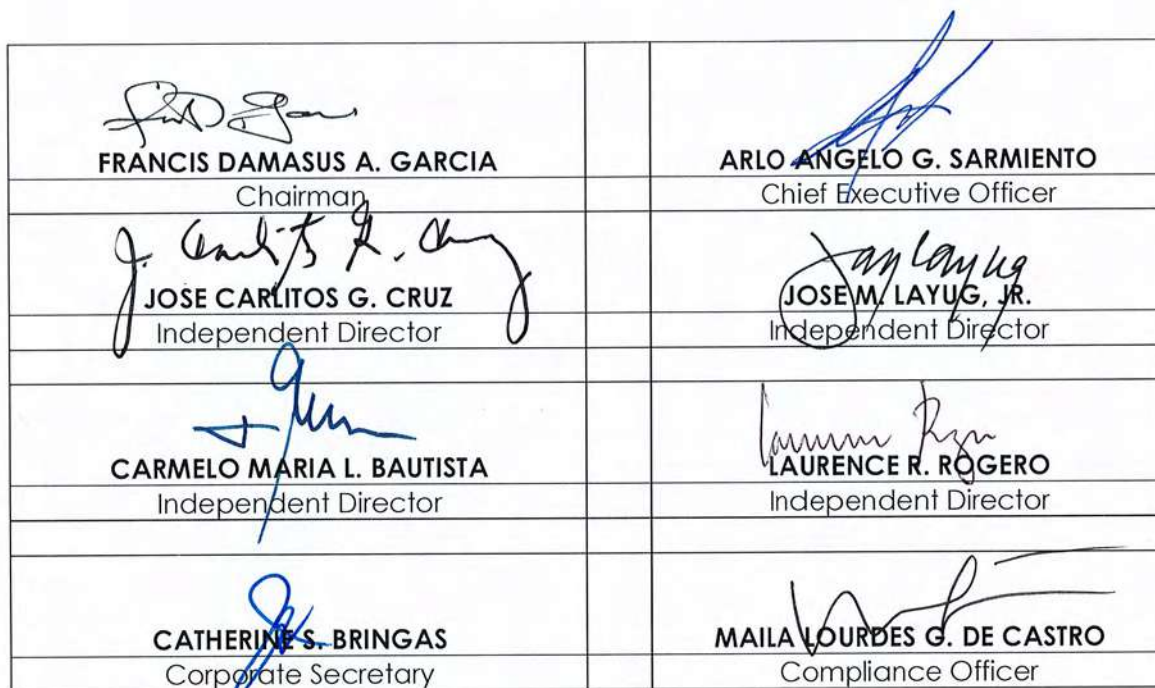 FRANCIS DAMASUS A. GARCIA
Chairman
ARLO ANGELO G. SARMIENTO
Chief Executive Officer
JOSE CARLITOS G. CRUZ
Independent Director
JOSE M. LAYUG, JR.
Independent Director
CARMELO MARIA L. BAUTISTA
Independent Director
LAURENCE R. ROGERO
Independent Director
CATHERINE S. BRINGAS
Corporate Secretary
MAILA LOURDES G. DE CASTRO
Compliance Officer